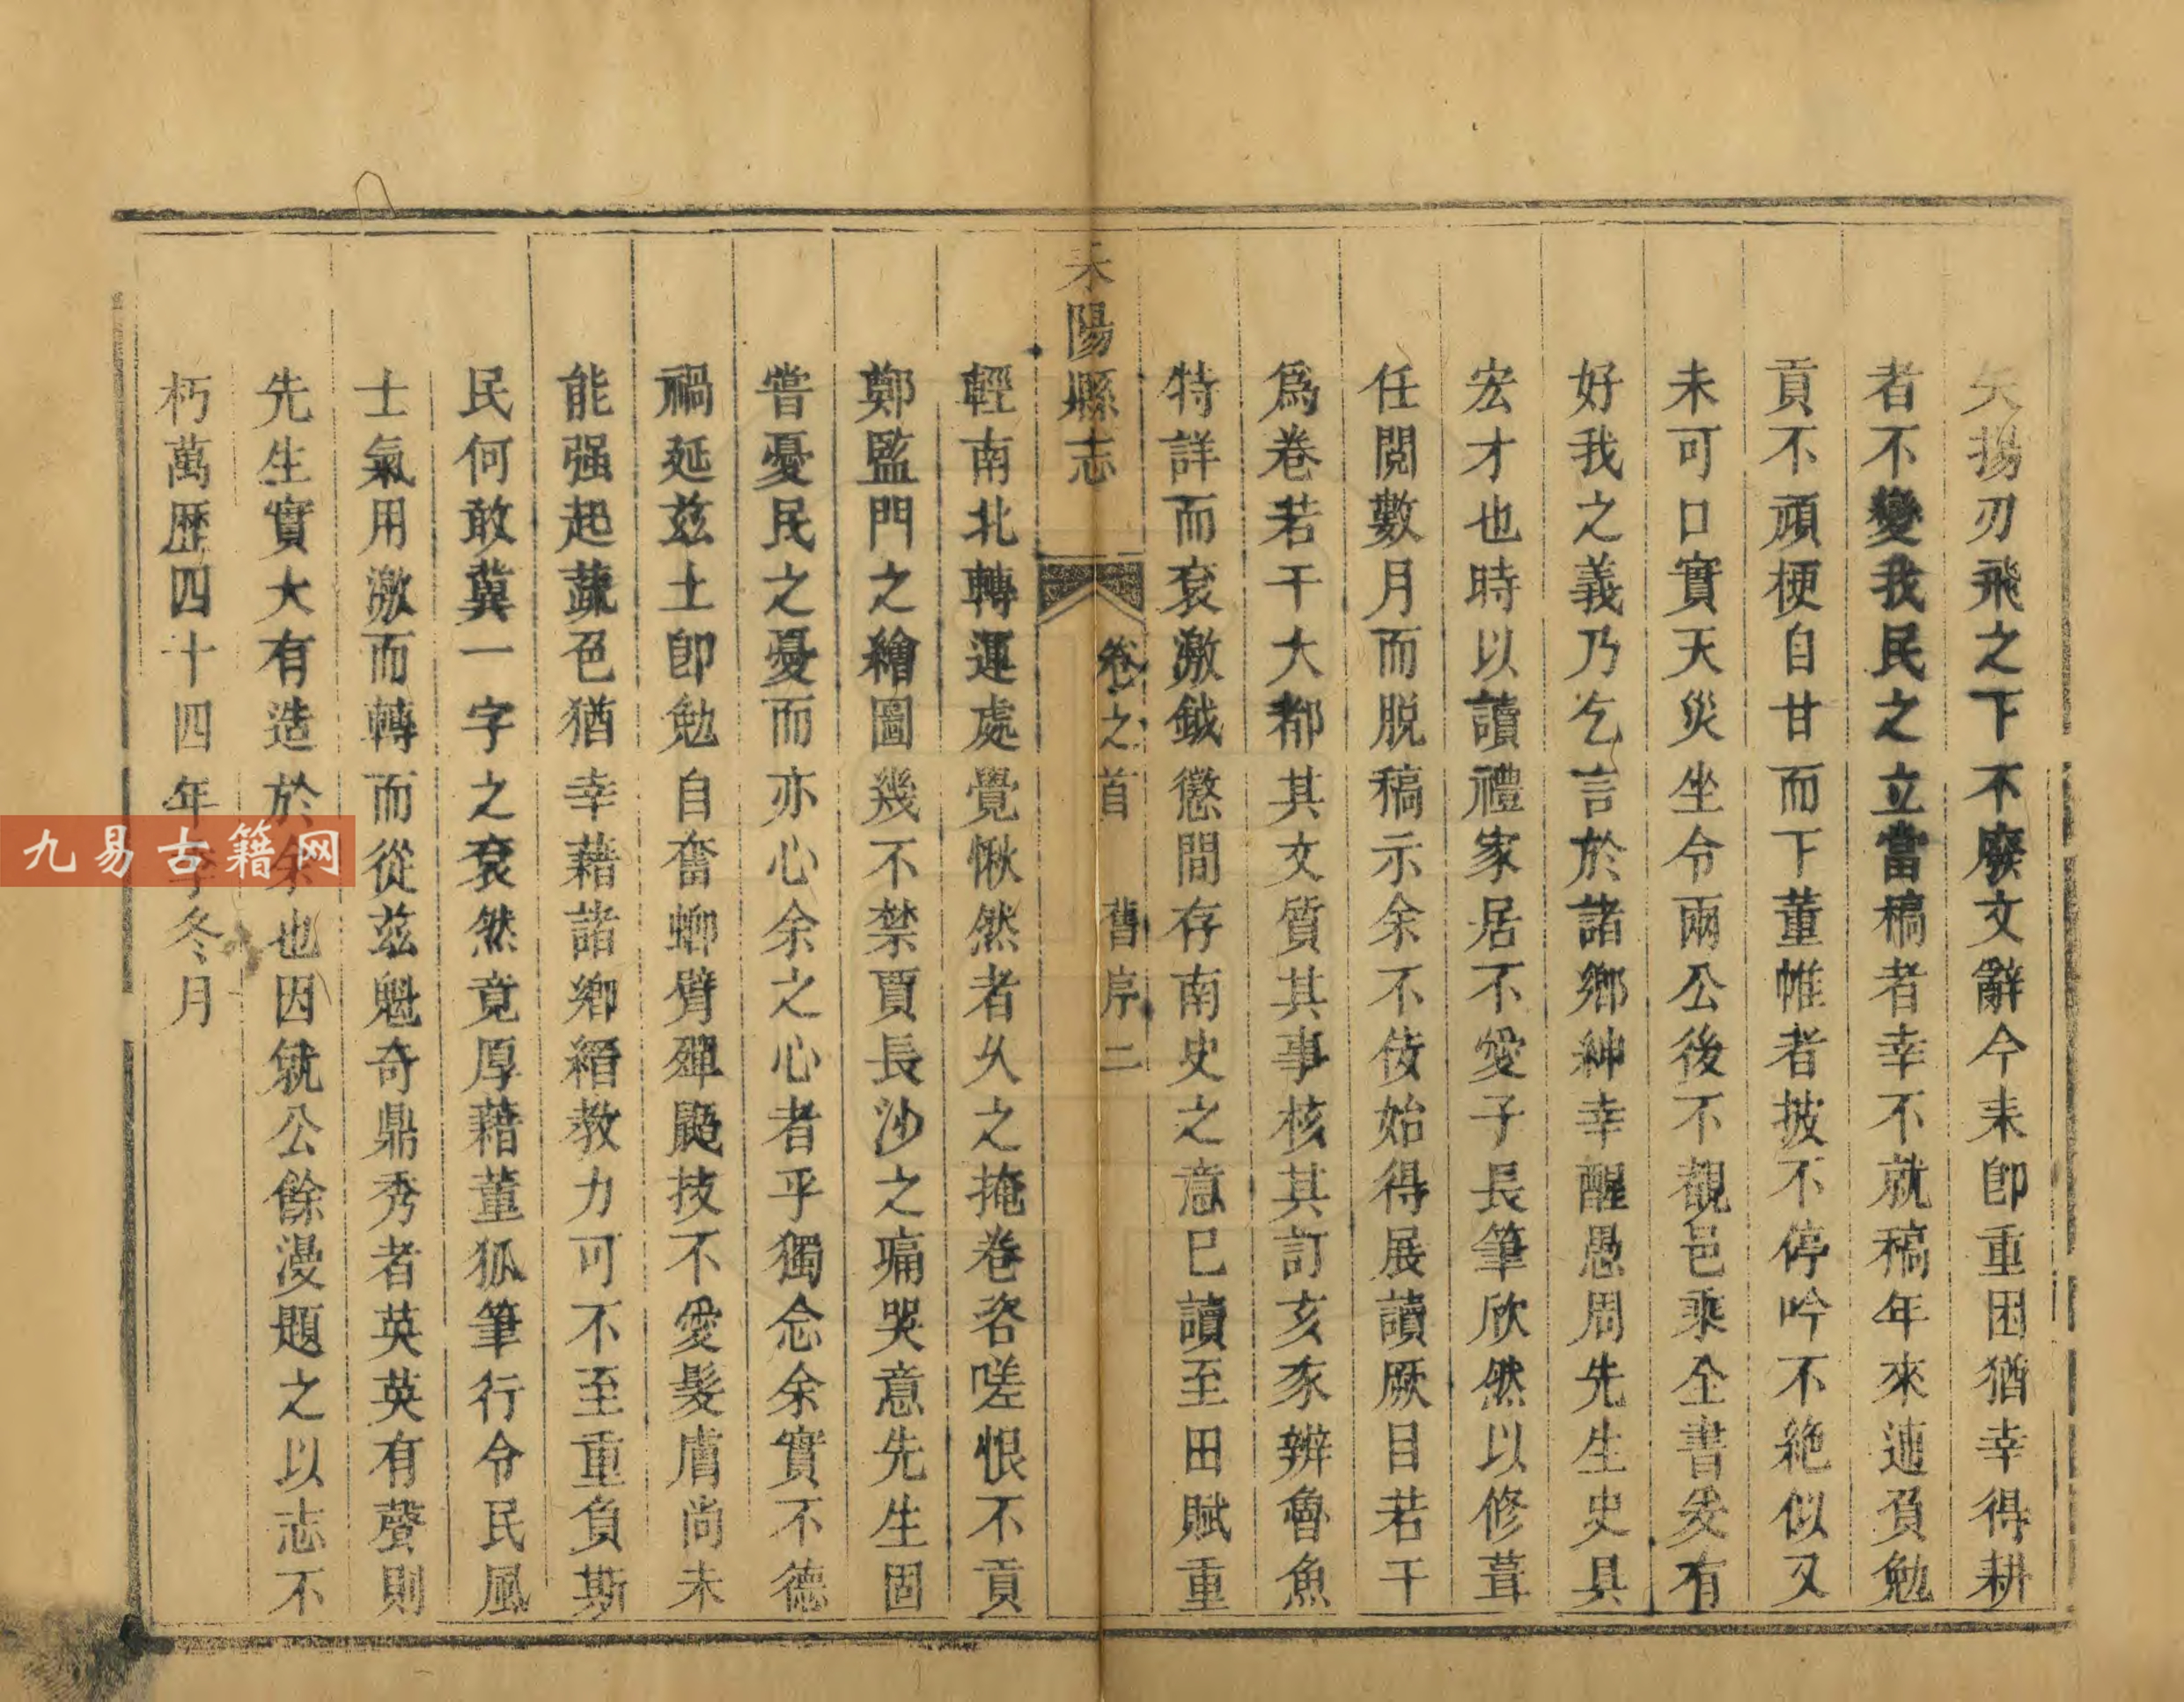 矢揚刃飛之下不廢文辭今耒卽重困猶幸得耕
者不變我民之立當稿者幸不就稿年來逋負勉
貢不頑梗自甘而下董帷者披不停吟不絶似又
未可口實天災坐令兩公後不覩邑乘全書爰有
好我之義乃乞言於諸鄉紳幸醒愚周先生史具
宏才也時以讀禮家居不愛子長筆欣然以修葺
任閲數月而脱稿示余不佞始得展讀厥目若干
爲卷若干大都其文質其事核其訂亥豕辨魯魚
特詳而衮激鉞懲間存南史之意已讀至田賦重
耒陽縣志 卷之首 舊序 二
輕南北轉運處覺愀然者久之掩卷咨嗟恨不貢
鄭監門之繪圖幾不禁賈長沙之痛哭意先生固
嘗憂民之憂而亦心余之心者乎獨念余實不德
禍延玆土卽勉自奮螂臂殫鼯技不愛髮膚尚未
能强起蔬色猶幸藉諸鄉縉教力可不至重負斯
民何敢冀一字之衮然竟厚藉董狐筆行令民風
士氣用激而轉而從玆魁奇鼎秀者英英有聲則
先生實大有造於余也因就公餘漫題之以志不
朽萬歴四十四年季冬月
九易古籍网